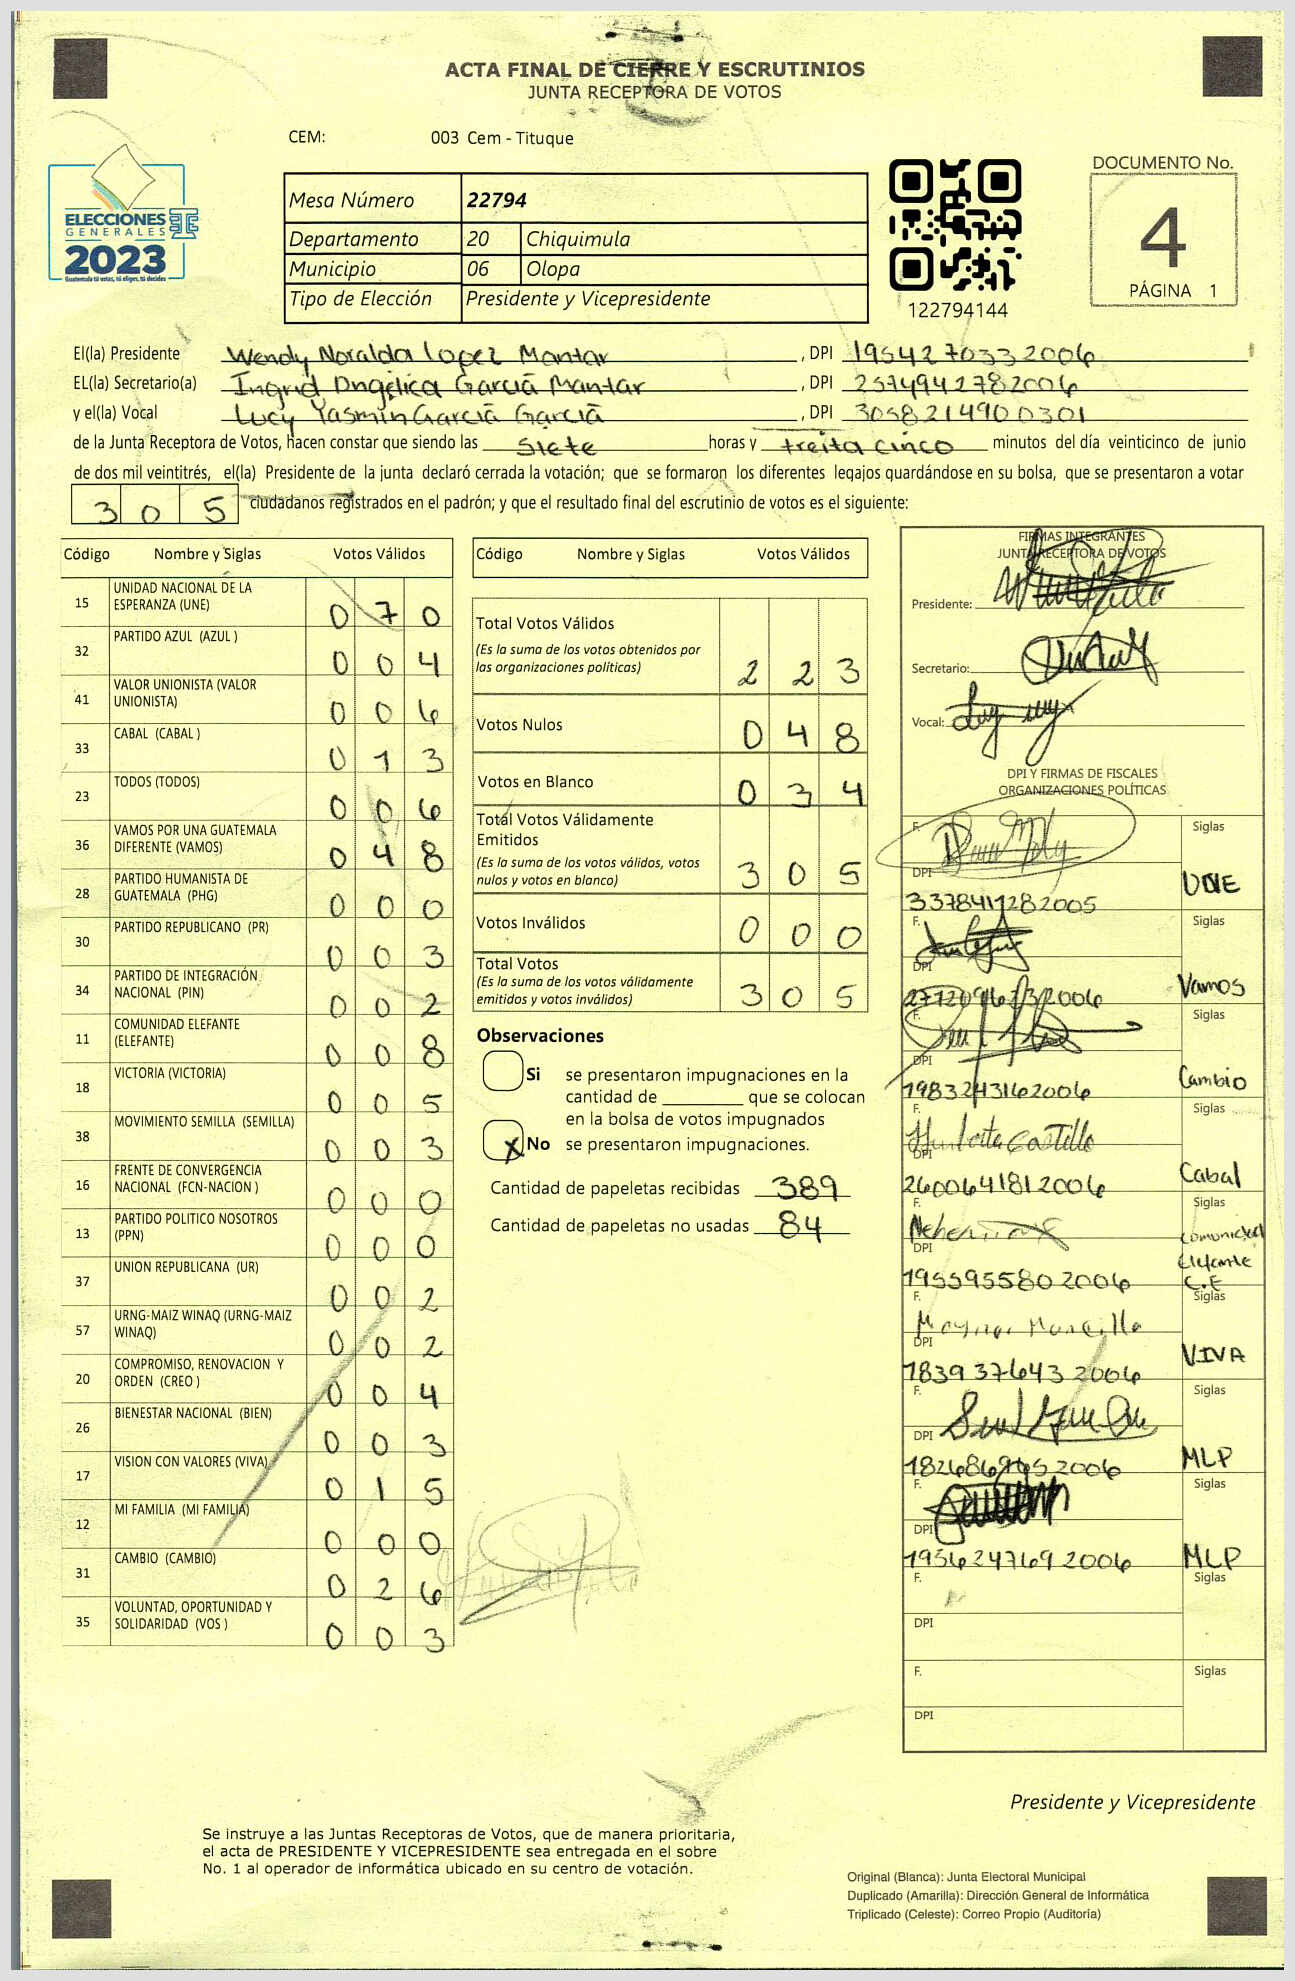 ACTA FINAL DE CIERRE Y ESCRUTINIOS
JUNTA RECEPTORA DE VOTOS
CEM: 003 Cem - Tituque
ELECCIONES
GENERALES
2023
Guatemala tú votas, tú eliges, tú decides
Mesa Número 22794
Departamento 20 Chiquimula
Municipio 06 Olopa
Tipo de Elección Presidente y Vicepresidente
122794144
DOCUMENTO No.
4
PÁGINA 1
El(la) Presidente Wendy Noralda Lopez Mantar, DPI 1954270332006
EL(la) Secretario(a) Ingrid Angelica Garcia Mantar, DPI 2574941782006
y el(la) Vocal Lucy Yasmin Garcia Garcia, DPI 3058214900301
de la Junta Receptora de Votos, hacen constar que siendo las siete horas y treita cinco minutos del día veinticinco de junio
de dos mil veintitrés, el(la) Presidente de la junta declaró cerrada la votación; que se formaron los diferentes legajos quardándose en su bolsa, que se presentaron a votar
305 ciudadanos registrados en el padrón; y que el resultado final del escrutinio de votos es el siguiente:
Código Nombre y Siglas Votos Válidos
15 UNIDAD NACIONAL DE LA
ESPERANZA (UNE) 070
32 PARTIDO AZUL (AZUL ) 004
41 VALOR UNIONISTA (VALOR
UNIONISTA) 006
33 CABAL (CABAL ) 013
23 TODOS (TODOS) 006
36 VAMOS POR UNA GUATEMALA
DIFERENTE (VAMOS) 048
28 PARTIDO HUMANISTA DE
GUATEMALA (PHG) 000
30 PARTIDO REPUBLICANO (PR) 003
34 PARTIDO DE INTEGRACIÓN
NACIONAL (PIN) 002
11 COMUNIDAD ELEFANTE
(ELEFANTE) 008
18 VICTORIA (VICTORIA) 005
38 MOVIMIENTO SEMILLA (SEMILLA) 003
16 FRENTE DE CONVERGENCIA
NACIONAL (FCN-NACION ) 000
13 PARTIDO POLITICO NOSOTROS
(PPN) 000
37 UNION REPUBLICANA (UR) 002
57 URNG-MAIZ WINAQ (URNG-MAIZ
WINAQ) 002
20 COMPROMISO, RENOVACION Y
ORDEN (CREO ) 004
26 BIENESTAR NACIONAL (BIEN) 003
17 VISION CON VALORES (VIVA) 015
12 MI FAMILIA (MI FAMILIA) 000
31 CAMBIO (CAMBIO) 026
35 VOLUNTAD, OPORTUNIDAD Y
SOLIDARIDAD (VOS ) 003
Código Nombre y Siglas Votos Válidos
Total Votos Válidos
(Es la suma de los votos obtenidos por
las organizaciones políticas) 223
Votos Nulos 048
Votos en Blanco 034
Total Votos Válidamente
Emitidos
(Es la suma de los votos válidos, votos
nulos y votos en blanco) 305
Votos Inválidos 000
Total Votos
(Es la suma de los votos válidamente
emitidos y votos inválidos) 305
Observaciones
Si se presentaron impugnaciones en la
cantidad de ________ que se colocan
en la bolsa de votos impugnados
X No se presentaron impugnaciones.
Cantidad de papeletas recibidas 389
Cantidad de papeletas no usadas 84
FIRMAS INTEGRANTES
JUNTA RECEPTORA DE VOTOS
Presidente:
Secretario:
Vocal:
DPI Y FIRMAS DE FISCALES
ORGANIZACIONES POLÍTICAS
F. Siglas
DPI
3378417282005 UNE
F. Siglas
DPI
2006 Vamos
F. Siglas
DPI
1983243162006 Cambio
F. Humberto Castillo Siglas
DPI
2600641812006 Cabal
F. Siglas
DPI comunidad
Elefante
1955955802006 C.E
F. Siglas
DPI
1839376432006 VIVA
F. Siglas
DPI
2006 MLP
F. Siglas
DPI
1956247692006 MLP
F. Siglas
DPI
F. Siglas
DPI
Presidente y Vicepresidente
Se instruye a las Juntas Receptoras de Votos, que de manera prioritaria,
el acta de PRESIDENTE Y VICEPRESIDENTE sea entregada en el sobre
No. 1 al operador de informática ubicado en su centro de votación.
Original (Blanca): Junta Electoral Municipal
Duplicado (Amarilla): Dirección General de Informática
Triplicado (Celeste): Correo Propio (Auditoría)